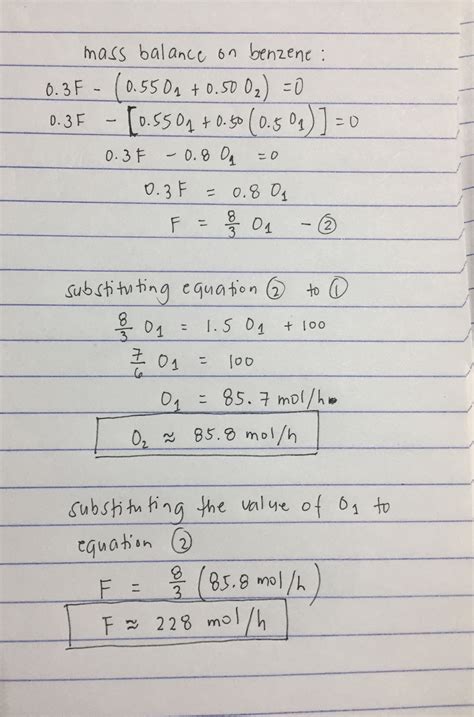 mass balance on benzene:
0.3F - (0.55O₁ + 0.50O₂) = 0
0.3F - [0.55O₁ + 0.50(0.5O₁)] = 0
0.3F - 0.8O₁ = 0
0.3F = 0.8O₁
F = 8/3 O₁ - ②
substituting equation ② to ①
8/3 O₁ = 1.5O₁ + 100
7/6 O₁ = 100
O₁ = 85.7 mol/h.
O₂ ≈ 85.8 mol/h
substituting the value of O₁ to
equation ②
F = 8/3 (85.8 mol/h)
F ≈ 228 mol/h